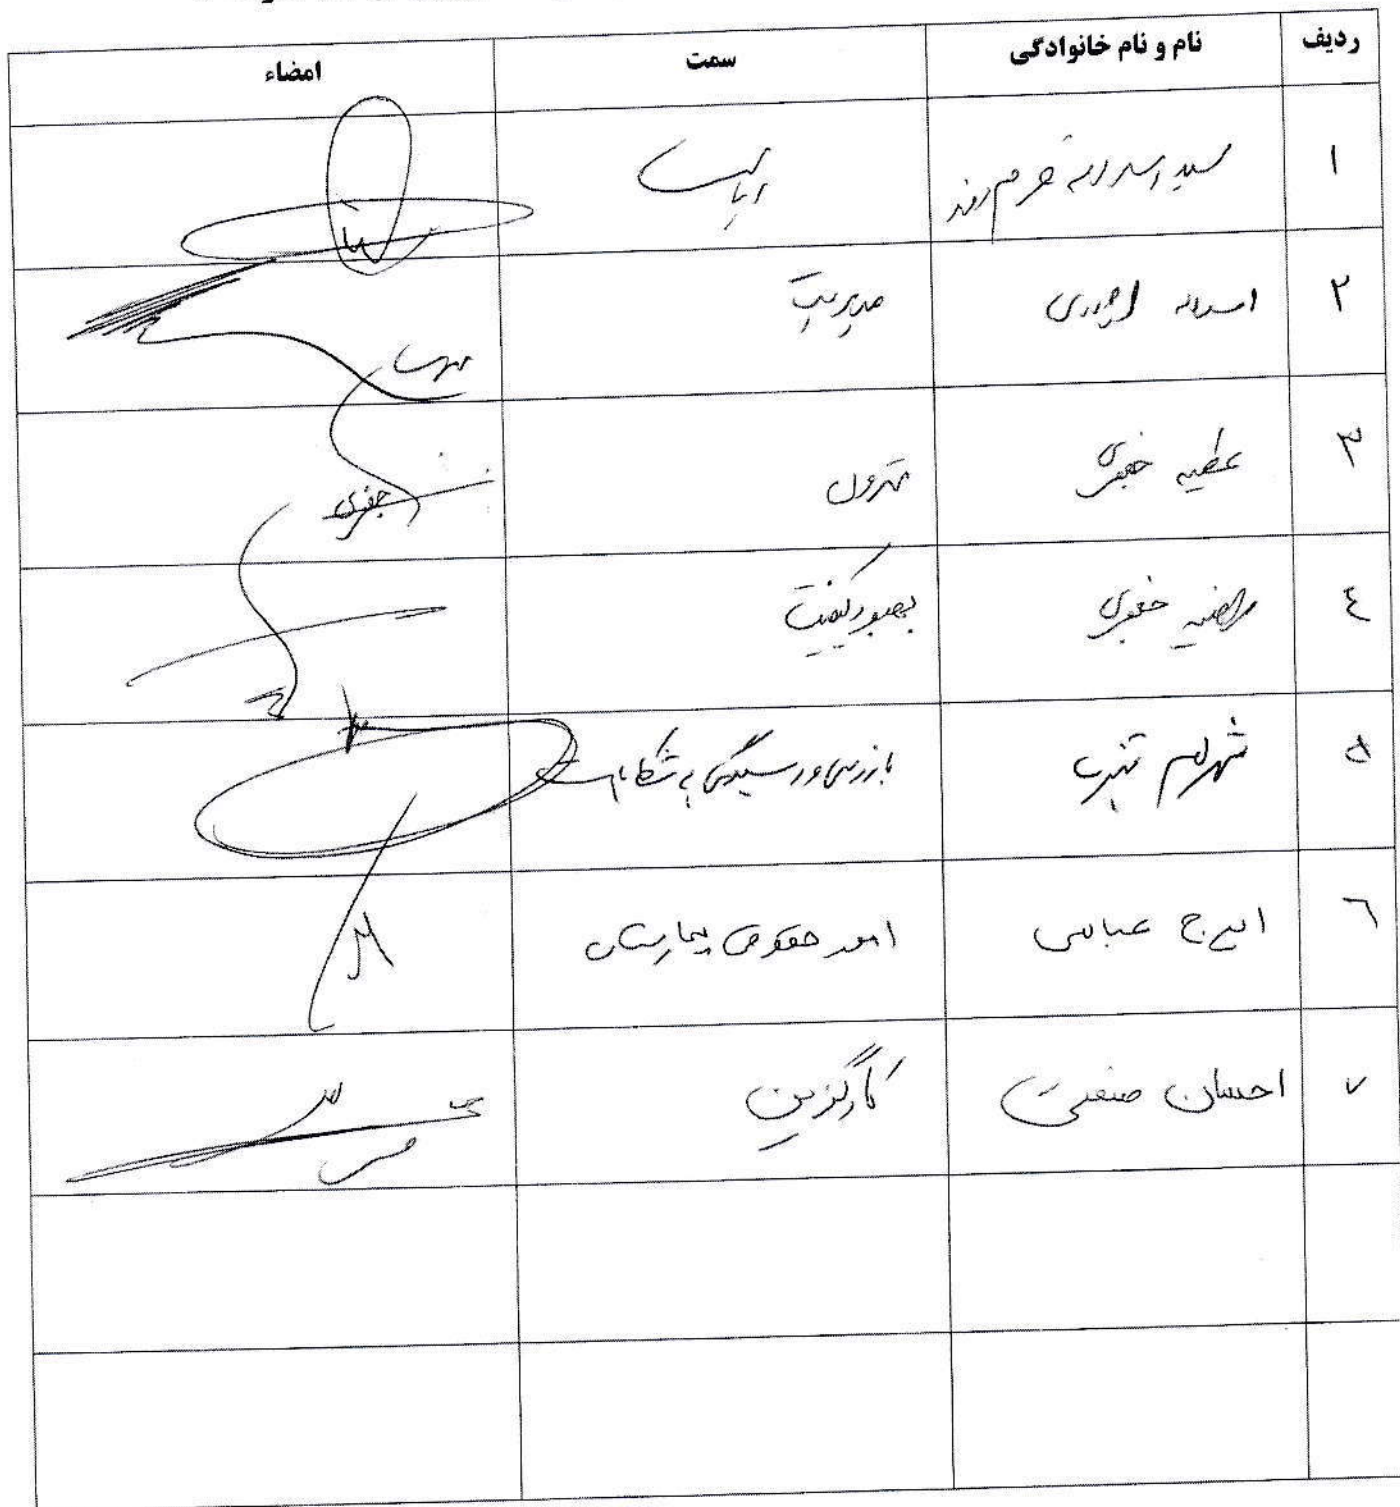 ردیف نام و نام خانوادگی سمت امضاء
۱ سید اسداله خرم روند ریاست
۲ اسداله حیدری مدیریت
۳ عطیه جعفری مترون
٤ راضیه جعفری بهبود کیفیت
۵ شهرام بازرسی و رسیدگی به شکایات
٦ ایرج عباسی امور حقوقی بیمارستان
۷ احسان صنعتی کارگزین